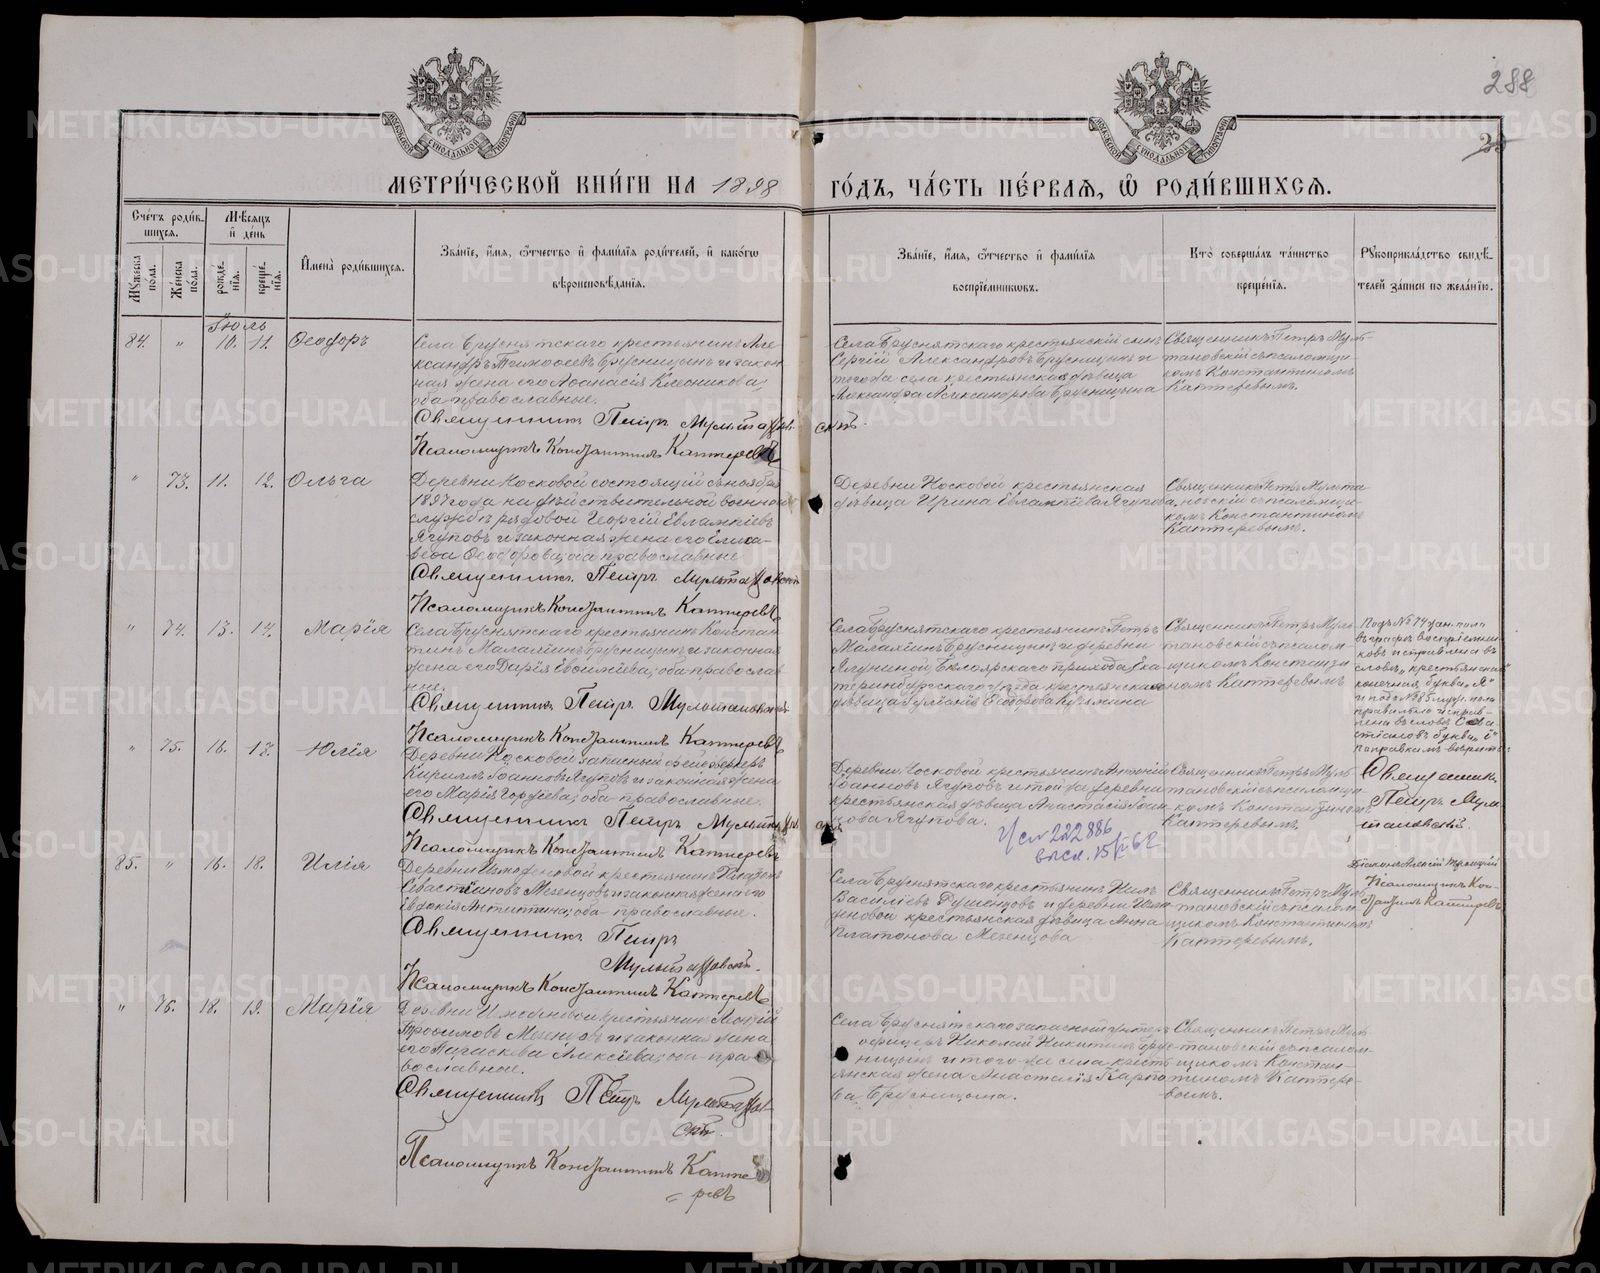 288
МОСКОВСКОЙ СѴНОДАЛЬНОЙ ТИПОГРАФІИ
МОСКОВСКОЙ СѴНОДАЛЬНОЙ ТИПОГРАФІИ
МЕТРИ́ЧЕСКОЙ КНИ́ГИ НА 1898 ГО́ДЪ, ЧА́СТЬ ПЕ́РВАѦ, Ѡ҆ РОДИ́ВШИХСѦ.
Сче́тъ роди́в-
шихся.
Мѣ́сяцъ
и҆ де́нь
Мꙋ́жеска
по́ла.
Же́нска
по́ла.
рожде́-
нїя.
креще́-
нїя.
И҆мена̀ роди́вшихся.
Зва́нїе, и҆́мя, ѻ҆́тчество и҆ фами́лїя роди́телей, и҆ како́гѡ
вѣроисповѣ́данїя.
Зва́нїе, и҆́мя, ѻ҆́тчество и҆ фами́лїя
воспрїе́мникѡвъ.
Кто̀ соверша́лъ та́инство
креще́нїя.
Рꙋкоприкла́дство свидѣ́-
телей за́писи по жела́нїю.
Іюль
84. " 10. 11. Ѳеодоръ
Села Бруснятского крестьянинъ Але-
ксандръ Тимоѳеевъ Брусницынъ и закон-
ная жена его Аѳанасія Колесникова;
оба православные.
Священникъ Петръ Мультановскій.
Псаломщикъ Константинъ Каптеревъ
Села Бруснятского крестьянскій сынъ
Сергій Александровъ Брусницынъ и
того же села крестьянская дѣвица
Александра Александрова Брусницына
Священникъ Петръ Муль-
тановскій съ псаломщи-
комъ Константиномъ
Каптеревымъ.
" 73. 11. 12. Ольга
Деревни Носковой состоящій съ ноября
1897 года на дѣйствительной военной
службѣ рядовой Георгій Евлампіевъ
Ягуповъ и законная жена его Елиса-
вета Ѳеодорова; оба православные
Священникъ Петръ Мультановскій
Псаломщикъ Константинъ Каптеревъ
Деревни Носковой крестьянская
дѣвица Ирина Евлампіева Ягупова
Священникъ Петръ Мульта-
новскій съ псаломщи-
комъ Константиномъ
Каптеревымъ.
" 74. 13. 14. Марія
Села Бруснятского крестьянинъ Констан-
тинъ Малахіинъ Брусницынъ и законная
жена его Дарія Евѳиміева; оба православ-
ные.
Священникъ Петръ Мультановскій
Псаломщикъ Константинъ Каптеревъ
Села Бруснятского крестьянинъ Петръ
Малахіинъ Брусницынъ и деревни
Ягуниной Бѣлоярскаго прихода Ека-
теринбургскаго уѣзда крестьянская
дѣвица Іуліанія Ѳеодорова Кузьмина
Священникъ Петръ Муль-
тановскій съ псалом-
щикомъ Константи-
номъ Каптеревымъ
Подъ № 74 жен. пола
въ графѣ воспріемни-
ковъ исправлена въ
словѣ „крестьянская"
конечная буква „я"
и подъ № 85 муж. пола
" 75. 16. 17. Юлія
Деревни Носковой запасный фейерверкеръ
Кириллъ Іоанновъ Ягуповъ и законная жена
его Марія Георгіева; оба православные.
Священникъ Петръ Мультановскій
Псаломщикъ Константинъ Каптеревъ
Деревни Носковой крестьянинъ Антоній
Іоанновъ Ягуповъ и той же деревни
крестьянская дѣвица Анастасія Іоан-
нова Ягупова.
Священникъ Петръ Муль-
тановскій съ псаломщи-
комъ Константиномъ
Каптеревымъ.
Священникъ
Петръ Муль-
тановскій.
Діаконъ Алексій Троицкій
Псаломщикъ Кон-
стантинъ Каптеревъ
222886
85. " 16. 18. Илія
Севастіановъ Мезенцовъ и законная жена его
Евдокія Антипина; оба православные.
Священникъ Петръ
Мультановскій.
Псаломщикъ Константинъ Каптеревъ
Села Бруснятского крестьянинъ
дѣвица Анна
Платонова Мезенцова
Священникъ Петръ Муль-
тановскій съ псалом-
щикомъ Константиномъ
Каптеревымъ.
" 76. 18. 19. Марія
Трофимовъ Мезенцовъ и законная жена
его Параскева Алексіева; оба пра-
вославные.
Священникъ Петръ Мультанов-
скій.
Псаломщикъ Константинъ Капте-
ревъ
Села Бруснятского запасный унтеръ
офицеръ Николай Никитинъ Брус-
ницынъ и того же села кресть-
янская жена Анастасія Карпо-
ва Брусницына.
Священникъ Петръ Муль-
тановскій съ псалом-
щикомъ Констан-
тиномъ Каптере-
вымъ.
METRIKI.GASO-URAL.RU